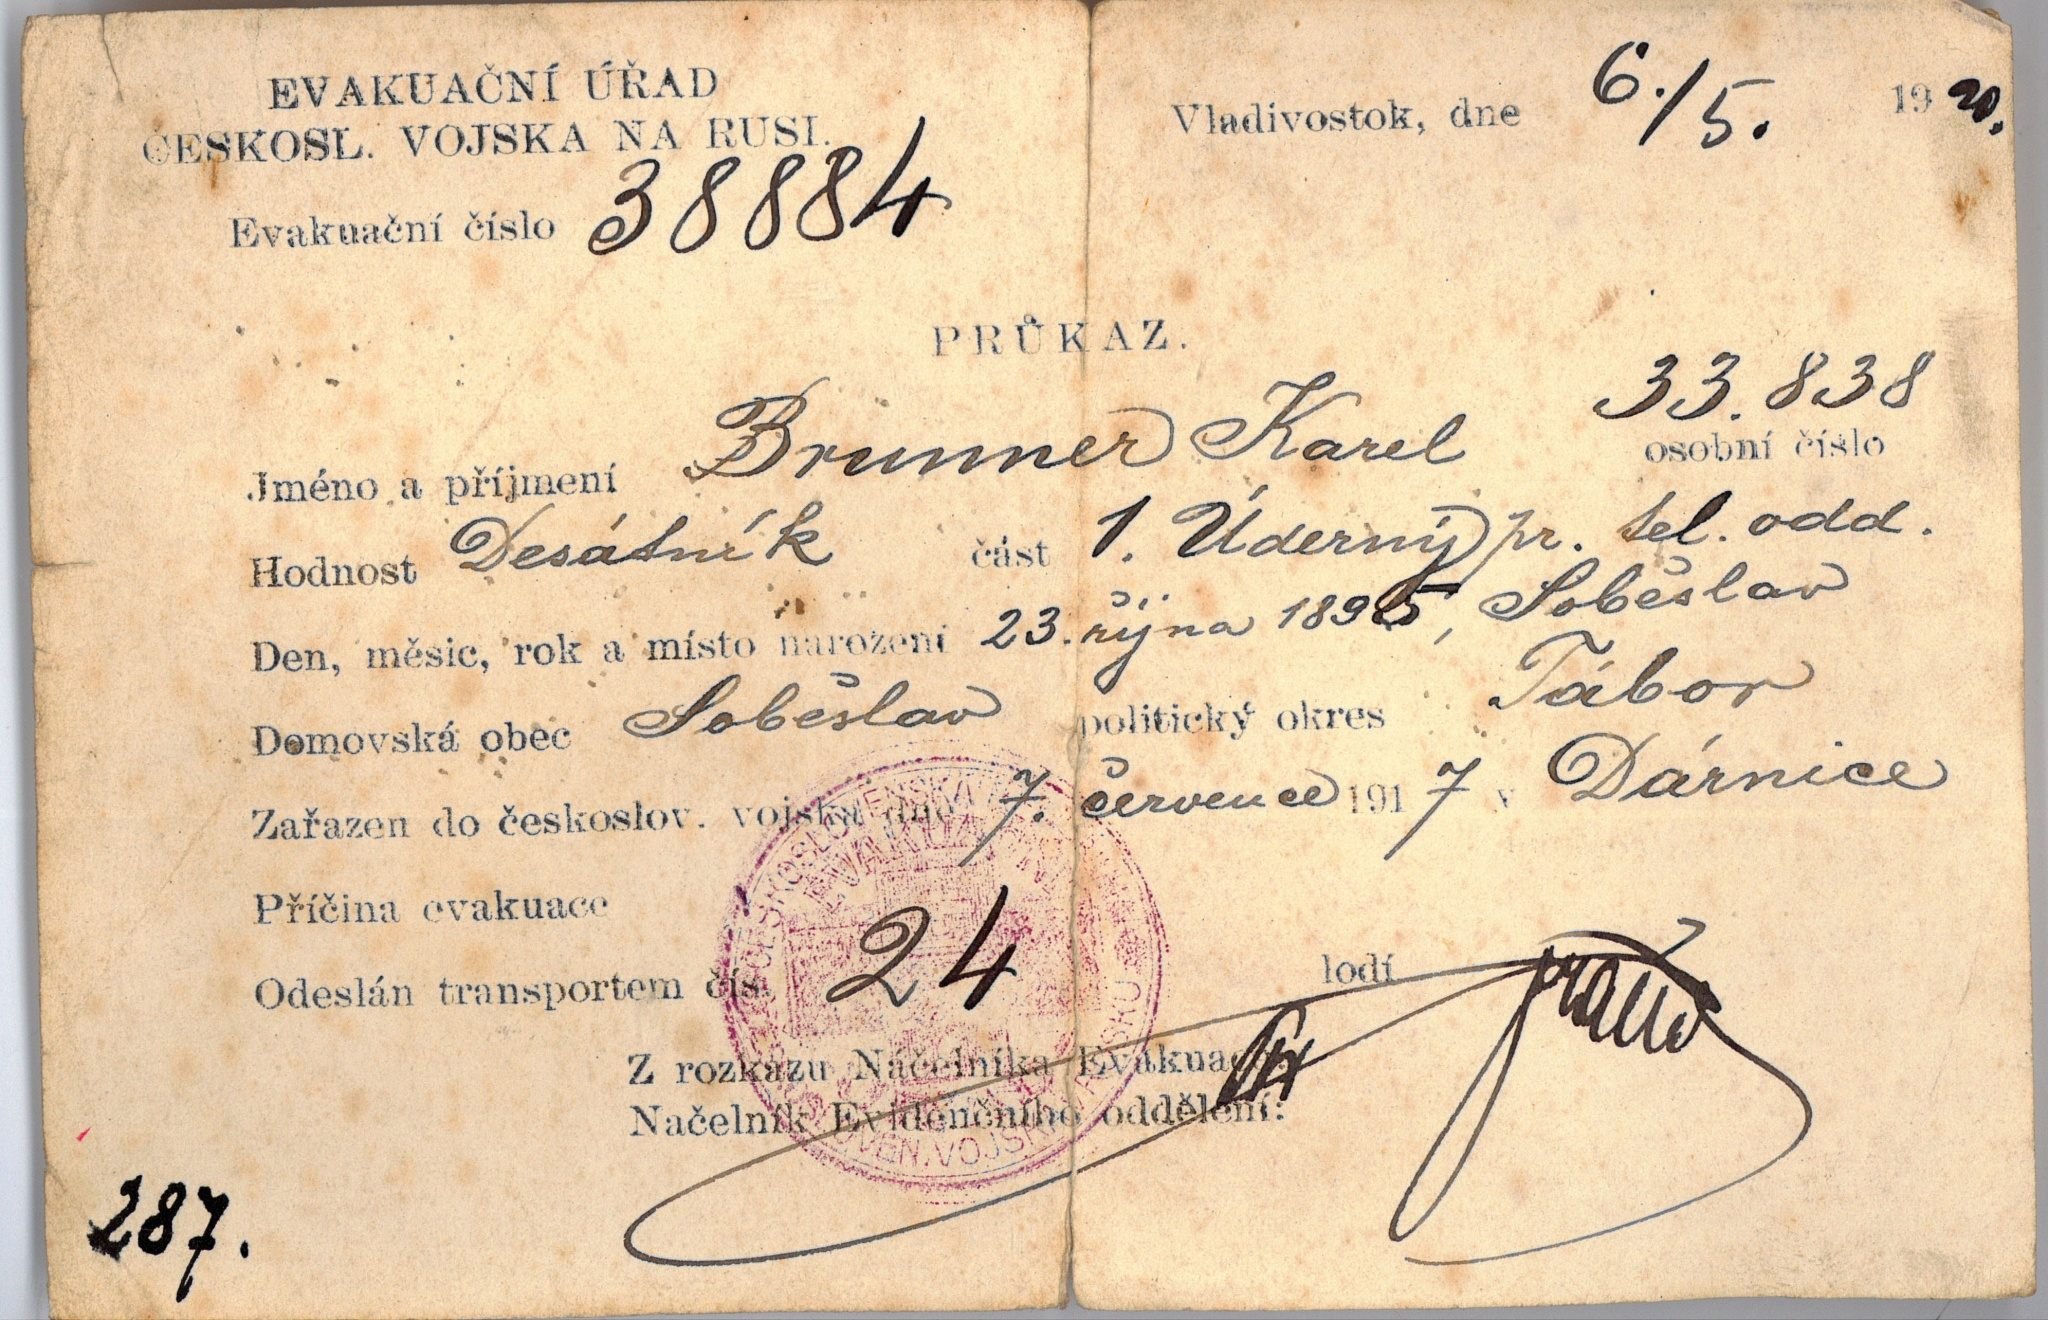 EVAKUAČNÍ ÚŘAD
ČESKOSL. VOJSKA NA RUSI.
Evakuační číslo 38884
Vladivostok, dne 6./5. 1920.
PRŮKAZ.
33.838
osobní číslo
Jméno a příjmení Brunner Karel
Hodnost Desátník část 1. Úderný pr. tel. odd.
Den, měsíc, rok a místo narození 23. října 1895, Soběslav
Domovská obec Soběslav politický okres Tábor
Zařazen do českoslov. vojska dne 7. července 1917 v Dárnice
Příčina evakuace
Odeslán transportem čís. 24 lodí
Z rozkazu Náčelníka Evakuace
Načelník Evidenčního oddělení:
287.